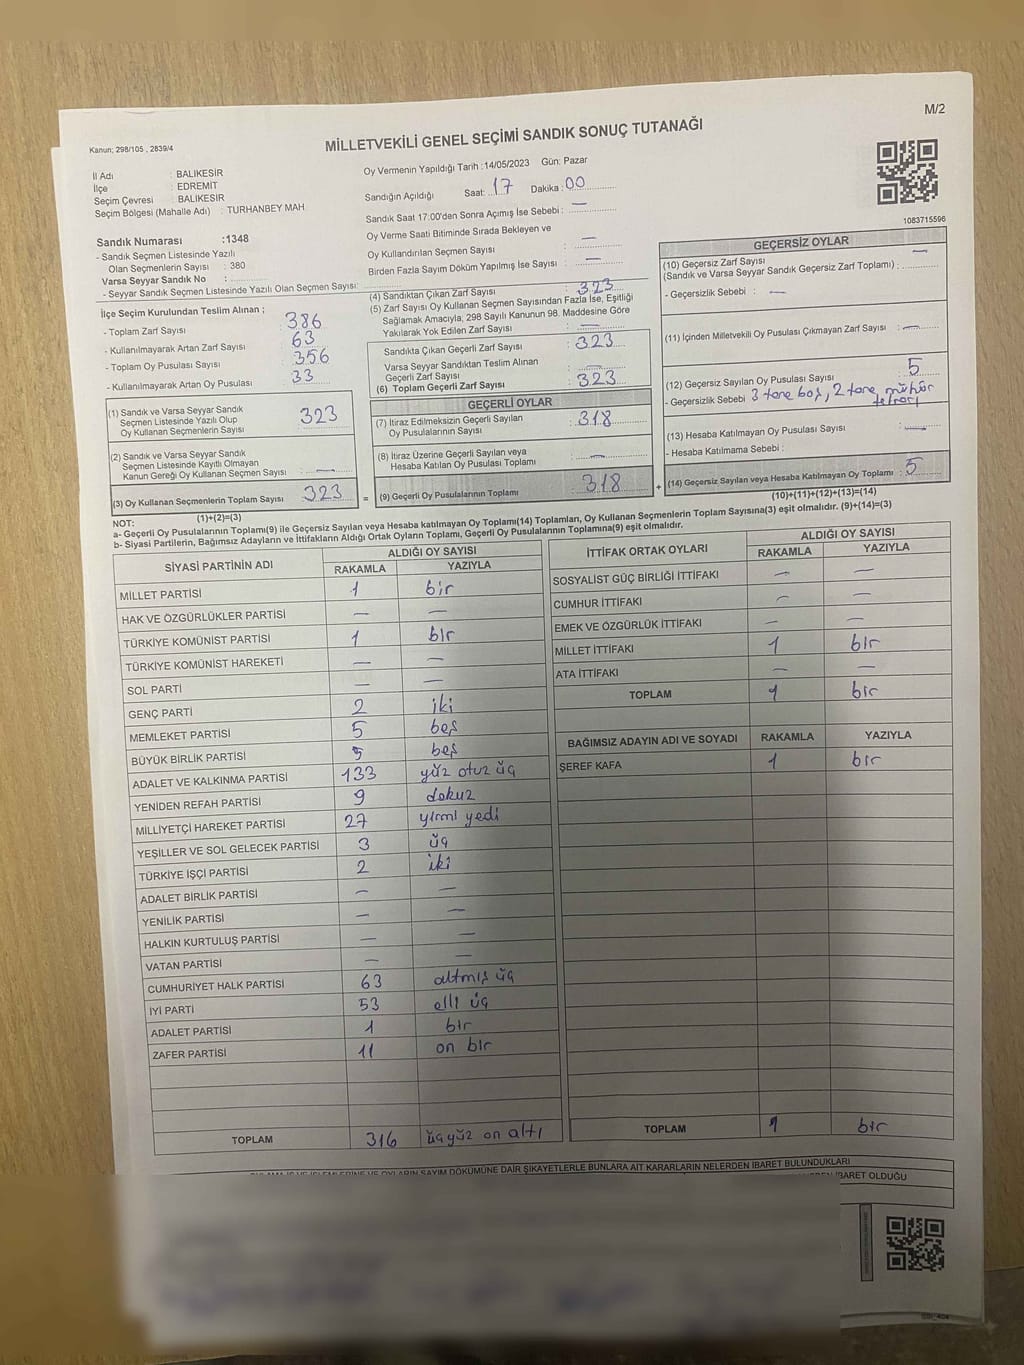 M/2
Kanun; 298/105 , 2839/4
MİLLETVEKİLİ GENEL SEÇİMİ SANDIK SONUÇ TUTANAĞI
İl Adı : BALIKESİR
İlçe : EDREMİT
Seçim Çevresi : BALIKESİR
Seçim Bölgesi (Mahalle Adı) : TURHANBEY MAH.
Oy Vermenin Yapıldığı Tarih :14/05/2023 Gün: Pazar
Sandığın Açıldığı Saat: 17 Dakika : 00
Sandık Saat 17:00'den Sonra Açımış İse Sebebi : —
Oy Verme Saati Bitiminde Sırada Bekleyen ve
Oy Kullandırılan Seçmen Sayısı : —
Birden Fazla Sayım Döküm Yapılmış İse Sayısı : —
1083715596
Sandık Numarası :1348
- Sandık Seçmen Listesinde Yazılı
Olan Seçmenlerin Sayısı : 380
Varsa Seyyar Sandık No :
- Seyyar Sandık Seçmen Listesinde Yazılı Olan Seçmen Sayısı:
İlçe Seçim Kurulundan Teslim Alınan ;
- Toplam Zarf Sayısı : 386
- Kullanılmayarak Artan Zarf Sayısı : 63
- Toplam Oy Pusulası Sayısı : 356
- Kullanılmayarak Artan Oy Pusulası : 33
(1) Sandık ve Varsa Seyyar Sandık
Seçmen Listesinde Yazılı Olup
Oy Kullanan Seçmenlerin Sayısı : 323
(2) Sandık ve Varsa Seyyar Sandık
Seçmen Listesinde Kayıtlı Olmayan
Kanun Gereği Oy Kullanan Seçmen Sayısı : —
(3) Oy Kullanan Seçmenlerin Toplam Sayısı : 323
(1)+(2)=(3)
(4) Sandıktan Çıkan Zarf Sayısı : 323
(5) Zarf Sayısı Oy Kullanan Seçmen Sayısından Fazla İse, Eşitliği
Sağlamak Amacıyla; 298 Sayılı Kanunun 98. Maddesine Göre
Yakılarak Yok Edilen Zarf Sayısı : —
Sandıkta Çıkan Geçerli Zarf Sayısı : 323
Varsa Seyyar Sandıktan Teslim Alınan
Geçerli Zarf Sayısı : —
(6) Toplam Geçerli Zarf Sayısı : 323
GEÇERLİ OYLAR
(7) İtiraz Edilmeksizin Geçerli Sayılan
Oy Pusulalarının Sayısı : 318
(8) İtiraz Üzerine Geçerli Sayılan veya
Hesaba Katılan Oy Pusulası Toplamı : —
= (9) Geçerli Oy Pusulalarının Toplamı : 318 +
GEÇERSİZ OYLAR
(10) Geçersiz Zarf Sayısı
(Sandık ve Varsa Seyyar Sandık Geçersiz Zarf Toplamı) : —
- Geçersizlik Sebebi : —
(11) İçinden Milletvekili Oy Pusulası Çıkmayan Zarf Sayısı : —
(12) Geçersiz Sayılan Oy Pusulası Sayısı : 5
- Geçersizlik Sebebi 3 tane boş, 2 tane mühür
(13) Hesaba Katılmayan Oy Pusulası Sayısı : —
- Hesaba Katılmama Sebebi :
(14) Geçersiz Sayılan veya Hesaba Katılmayan Oy Toplamı : 5
(10)+(11)+(12)+(13)=(14)
NOT:
a- Geçerli Oy Pusulalarının Toplamı(9) ile Geçersiz Sayılan veya Hesaba katılmayan Oy Toplamı(14) Toplamları, Oy Kullanan Seçmenlerin Toplam Sayısına(3) eşit olmalıdır. (9)+(14)=(3)
b- Siyasi Partilerin, Bağımsız Adayların ve İttifakların Aldığı Ortak Oyların Toplamı, Geçerli Oy Pusulalarının Toplamına(9) eşit olmalıdır.
SİYASİ PARTİNİN ADI ALDIĞI OY SAYISI
RAKAMLA YAZIYLA
MİLLET PARTİSİ 1 bir
HAK VE ÖZGÜRLÜKLER PARTİSİ — —
TÜRKİYE KOMÜNİST PARTİSİ 1 bir
TÜRKİYE KOMÜNİST HAREKETİ — —
SOL PARTİ — —
GENÇ PARTİ 2 iki
MEMLEKET PARTİSİ 5 beş
BÜYÜK BİRLİK PARTİSİ 5 beş
ADALET VE KALKINMA PARTİSİ 133 yüz otuz üç
YENİDEN REFAH PARTİSİ 9 dokuz
MİLLİYETÇİ HAREKET PARTİSİ 27 yirmi yedi
YEŞİLLER VE SOL GELECEK PARTİSİ 3 üç
TÜRKİYE İŞÇİ PARTİSİ 2 iki
ADALET BİRLİK PARTİSİ — —
YENİLİK PARTİSİ — —
HALKIN KURTULUŞ PARTİSİ — —
VATAN PARTİSİ — —
CUMHURİYET HALK PARTİSİ 63 altmış üç
İYİ PARTİ 53 elli üç
ADALET PARTİSİ 1 bir
ZAFER PARTİSİ 11 on bir
TOPLAM 316 üçyüz on altı
İTTİFAK ORTAK OYLARI ALDIĞI OY SAYISI
RAKAMLA YAZIYLA
SOSYALİST GÜÇ BİRLİĞİ İTTİFAKI — —
CUMHUR İTTİFAKI — —
EMEK VE ÖZGÜRLÜK İTTİFAKI — —
MİLLET İTTİFAKI 1 bir
ATA İTTİFAKI — —
TOPLAM 1 bir
BAĞIMSIZ ADAYIN ADI VE SOYADI RAKAMLA YAZIYLA
ŞEREF KAFA 1 bir
TOPLAM 1 bir
OYLARIN SAYIM DÖKÜMÜNE DAİR ŞİKAYETLERLE BUNLARA AİT KARARLARIN NELERDEN İBARET BULUNDUKLARI
İBARET OLDUĞU